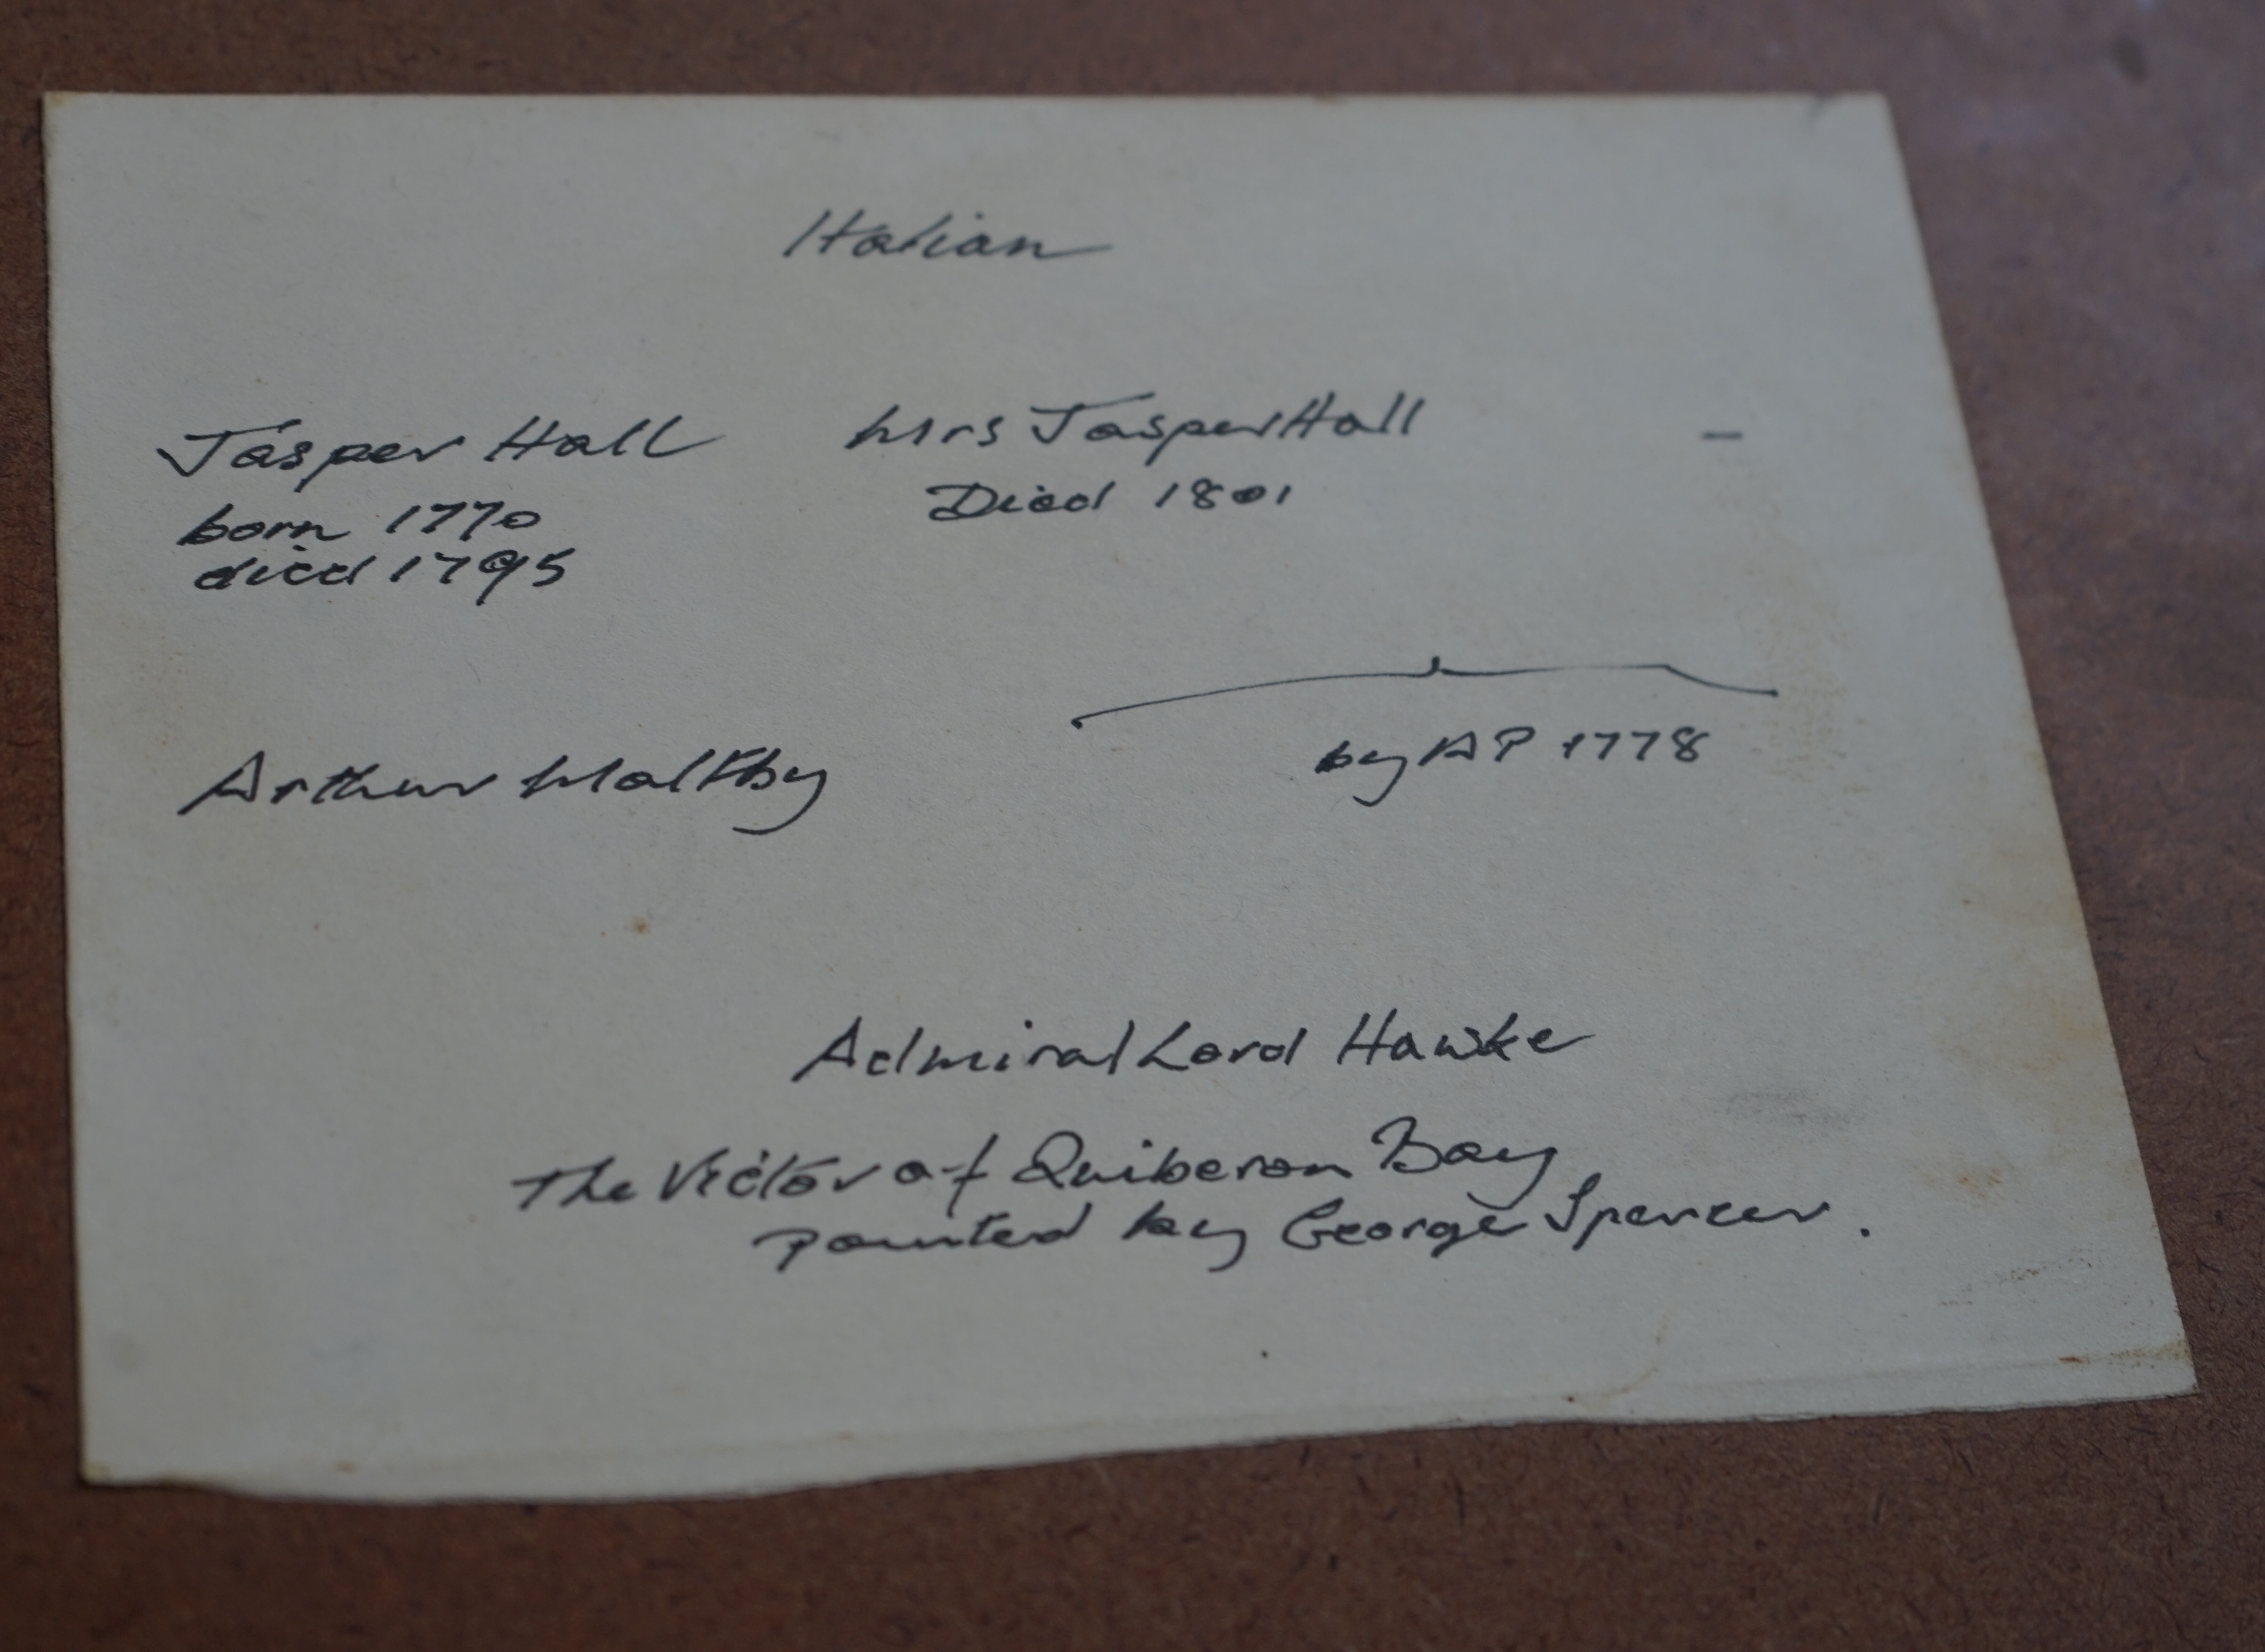 Italian
Jasper Hall Mrs Jasper Hall -
born 1770 Died 1801
died 1795
Arthur Maltby by AP 1778
Admiral Lord Hawke
The Victor of Quiberon Bay
painted by George Spencer.